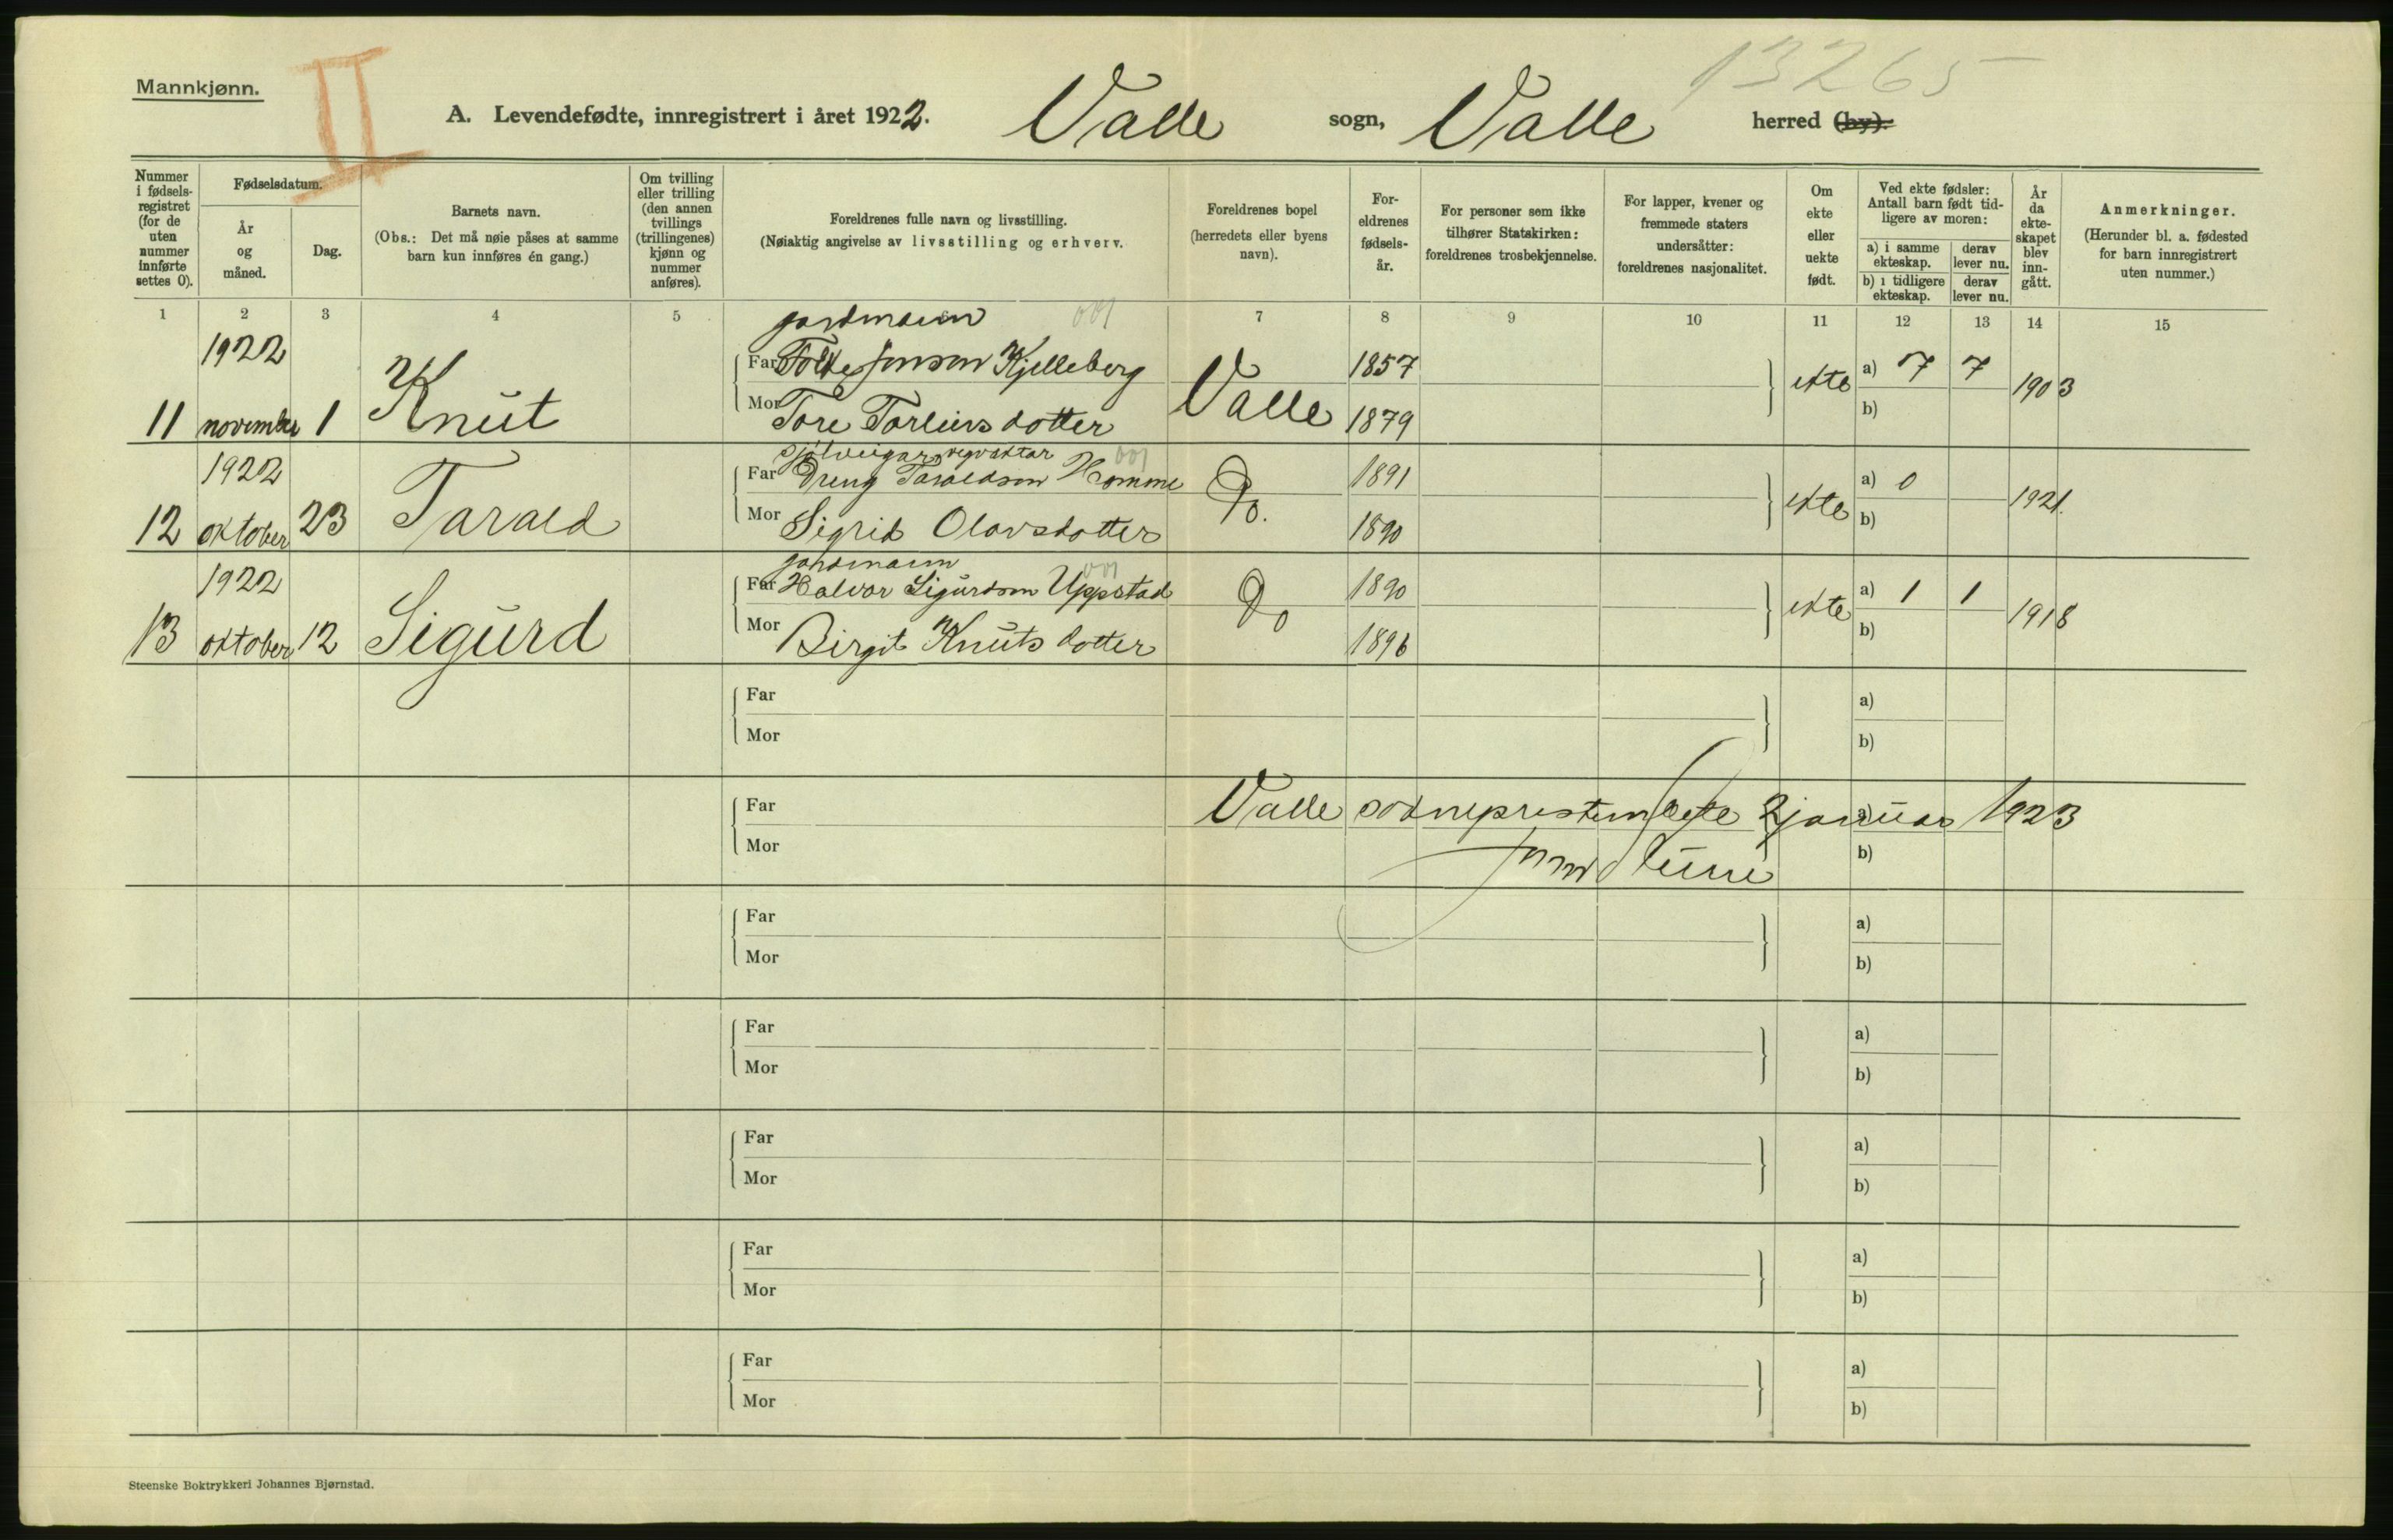 Mannkjønn.
II
13265
A. Levendefødte, innregistrert i året 1922. Valle sogn, Valle herred (by).
Nummer i fødselsregistret (for de uten nummer innførte settes 0).
Fødselsdatum.
År og måned.
Dag.
Barnets navn.
(Obs.: Det må nøie påses at samme barn kun innføres én gang.)
Om tvilling eller trilling (den annen tvillings (trillingenes) kjønn og nummer anføres).
Foreldrenes fulle navn og livsstilling.
(Nøiaktig angivelse av livsstilling og erhverv.
Foreldrenes bopel (herredets eller byens navn).
Foreldrenes fødselsår.
For personer som ikke tilhører Statskirken: foreldrenes trosbekjennelse.
For lapper, kvener og fremmede staters undersåtter: foreldrenes nasjonalitet.
Om ekte eller uekte født.
Ved ekte fødsler: Antall barn født tidligere av moren:
a) i samme ekteskap.
derav lever nu.
b) i tidligere ekteskap.
derav lever nu.
År da ekteskapet blev inngått.
Anmerkninger.
(Herunder bl. a. fødested for barn innregistrert uten nummer.)
1 2 3 4 5 7 8 9 10 11 12 13 14 15
gardmann 001
1922 Far Folke Jonson Kjelleberg 1857 a) 7 7
11 november 1 Knut Mor Tore Torleivsdotter Valle 1879 ekte b) 1903
sjølveigar 001
1922 Far Dreng Taraldson Homme 1891 a) 0
12 oktober 23 Tarald Mor Sigrid Olavsdotter Do. 1890 ekte b) 1921.
gardmann 001
1922 Far Halvor Sigurdson Uppstad 1890 a) 1 1
13 oktober 12 Sigurd Mor Birgit Knutsdotter Do 1896 ekte b) 1918
Far a)
Mor b)
Far Valle sokneprestembete 2 januar 1923 a)
Mor b)
Far a)
Mor b)
Far a)
Mor b)
Far a)
Mor b)
Far a)
Mor b)
Far a)
Mor b)
Steenske Boktrykkeri Johannes Bjørnstad.